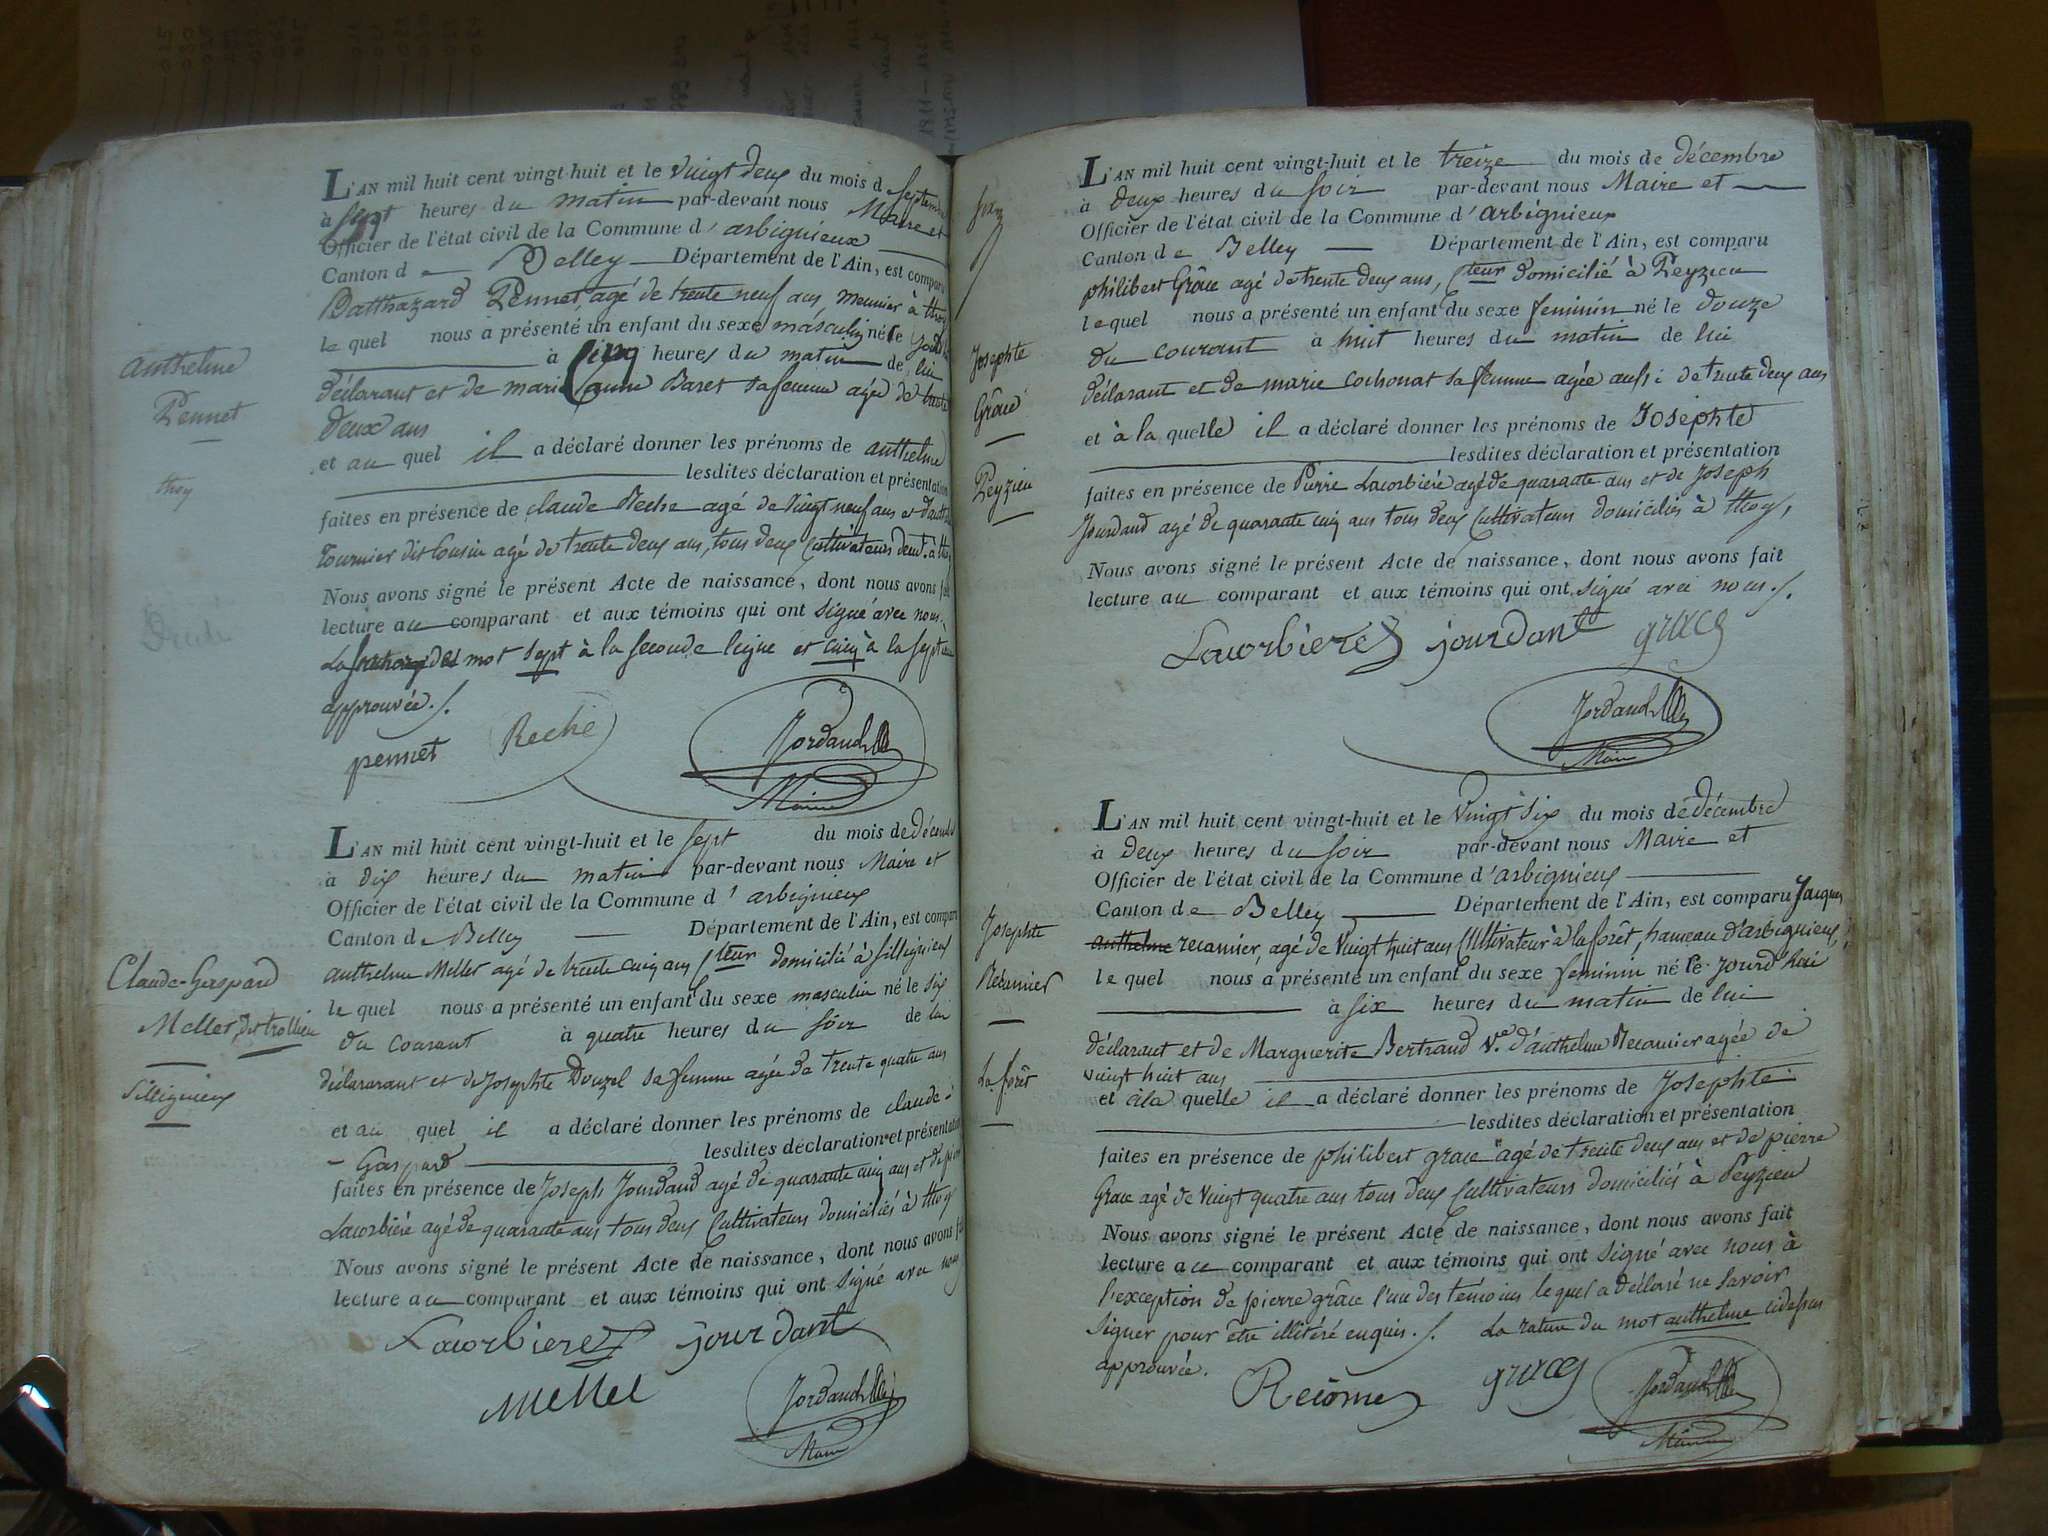 L'AN mil huit cent vingt-huit et le vingt deux du mois d septembre
à sept heures du matin par-devant nous Maire et
Officier de l'état civil de la Commune d'arbignieux
Canton de Belley Département de l'Ain, est comparu
Balthazard Pennet agé de trente neuf ans, meunier à thoy
le quel nous a présenté un enfant du sexe masculin né le jourd'hui
à Cinq heures du matin de lui
déclarant et de marie anne Baret sa femme agée de trente
deux ans
et au quel il a déclaré donner les prénoms de anthelme
lesdites déclaration et présentation
faites en présence de claude Reche agé de vingt neuf ans et d'anthelme
Tournier dit Cousin agé de trente deux ans, tous deux Cultivateurs demt. à thoy
Nous avons signé le présent Acte de naissance, dont nous avons fait
lecture au comparant et aux témoins qui ont signé avec nous.
La mot sept à la seconde ligne et cinq à la septième
approuvée ./.
pennet Reche Jordand
Maire
Antheline
Pennet
thoy
L'AN mil huit cent vingt-huit et le sept du mois de décembre
à dix heures du matin par-devant nous Maire et
Officier de l'état civil de la Commune d'arbignieux
Canton de Belley Département de l'Ain, est comparu
anthelme Meller agé de trente cinq ans Cteur domicilié à Sillignieux
le quel nous a présenté un enfant du sexe masculin né le six
du courant à quatre heures du soir de lui
déclararant et de Josephte Douzel sa femme agée de trente quatre ans
et au quel il a déclaré donner les prénoms de claude-
- Gaspard lesdites déclaration et présentation
faites en présence de Joseph Jourdand agé de quarante cinq ans et de pierre
Lacorbière agé de quarante ans tous deux Cultivateurs domiciliés à thoy
Nous avons signé le présent Acte de naissance, dont nous avons fait
lecture au comparant et aux témoins qui ont signé avec nous
Lacorbiere jourdant
Mellel Jordand
Maire
Claude-Gaspard
Meller, dit trollieu
Sillignieux
L'AN mil huit cent vingt-huit et le treize du mois de décembre
à deux heures du soir par-devant nous Maire et
Officier de l'état civil de la Commune d'arbignieux
Canton de Belley Département de l'Ain, est comparu
philibert Grâce agé de trente deux ans, Cteur domicilié à Peyzieu
le quel nous a présenté un enfant du sexe feminin né le douze
du courant à huit heures du matin de lui
déclarant et de marie cochonat sa femme agée aussi de trente deux ans
et à la quelle il a déclaré donner les prénoms de Josephte
lesdites déclaration et présentation
faites en présence de Pierre Lacorbière agé de quarante ans et de Joseph
Jourdand agé de quarante cinq ans tous deux Cultivateurs domiciliés à thoy,
Nous avons signé le présent Acte de naissance, dont nous avons fait
lecture au comparant et aux témoins qui ont signé avec nous ./.
Lacorbiere jourdant graces
Jordand
Maire
Josephte
Grâce
Peyzieu
L'AN mil huit cent vingt-huit et le vingt six du mois de décembre
à deux heures du soir par-devant nous Maire et
Officier de l'état civil de la Commune d'arbignieux
Canton de Belley Département de l'Ain, est comparu Jacques
anthelme recamier, agé de vingt huit ans Cultivateur à la forêt, hameau d'arbignieux,
le quel nous a présenté un enfant du sexe feminin né le jourd'hui
à six heures du matin de lui
déclarant et de Marguerite Bertrand Ve. d'anthelme Recamier agée de
vingt huit ans
et à la quelle il a déclaré donner les prénoms de Josephte
lesdites déclaration et présentation
faites en présence de philibert grace agé de trente deux ans et de pierre
Grace agé de vingt quatre ans tous deux Cultivateurs domiciliés à Peyzieu
Nous avons signé le présent Acte de naissance, dont nous avons fait
lecture au comparant et aux témoins qui ont signé avec nous à
l'exception de pierre grâce l'un des témoins lequel a déclaré ne savoir
signer pour être illitéré enquis ./. La rature du mot anthelme cidessus
approuvée.
graces Jordand
Maire
Josephte
Récamier
La forêt